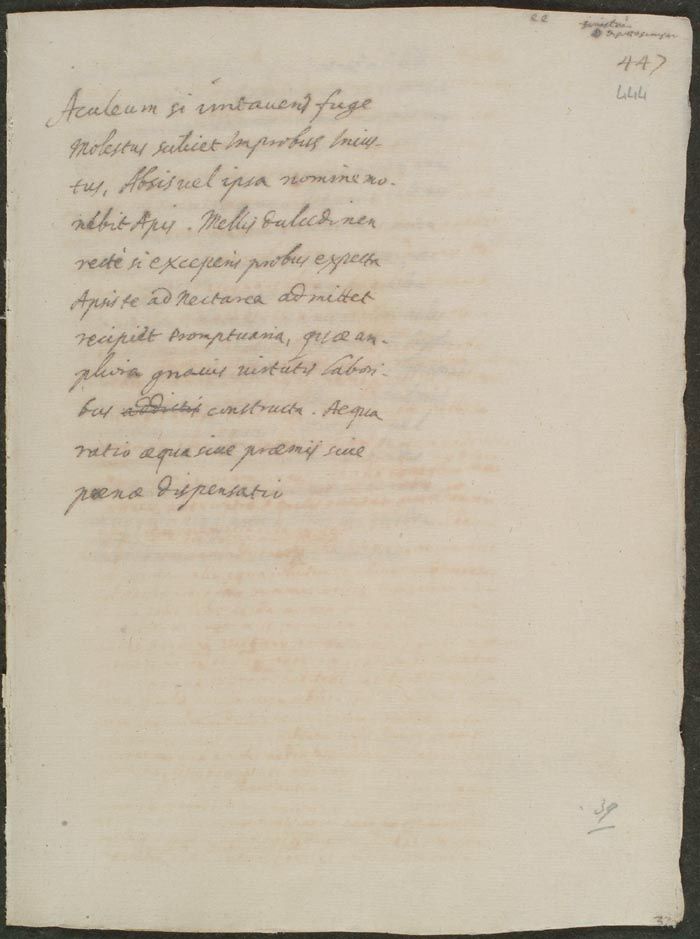 ee
447
444
Aculeum si irritaveris fuge
Molestus scilicet Improbus Inius-
tus, Absis vel ipsa nomine mo-
nebit Apis. Mellis dulcedinen
recte si exceperis probus expecta
Apis te ad Nectarea admittet
recipiet promptuaria, quæ an-
pliora gnavis virtutis labori-
bus addictis constructa. Aequa
ratio æqua sive præmij sive
pœnæ dispensatio
39